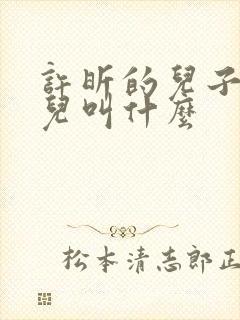 許昕的兒子
兒叫什麼
松本清志郎正